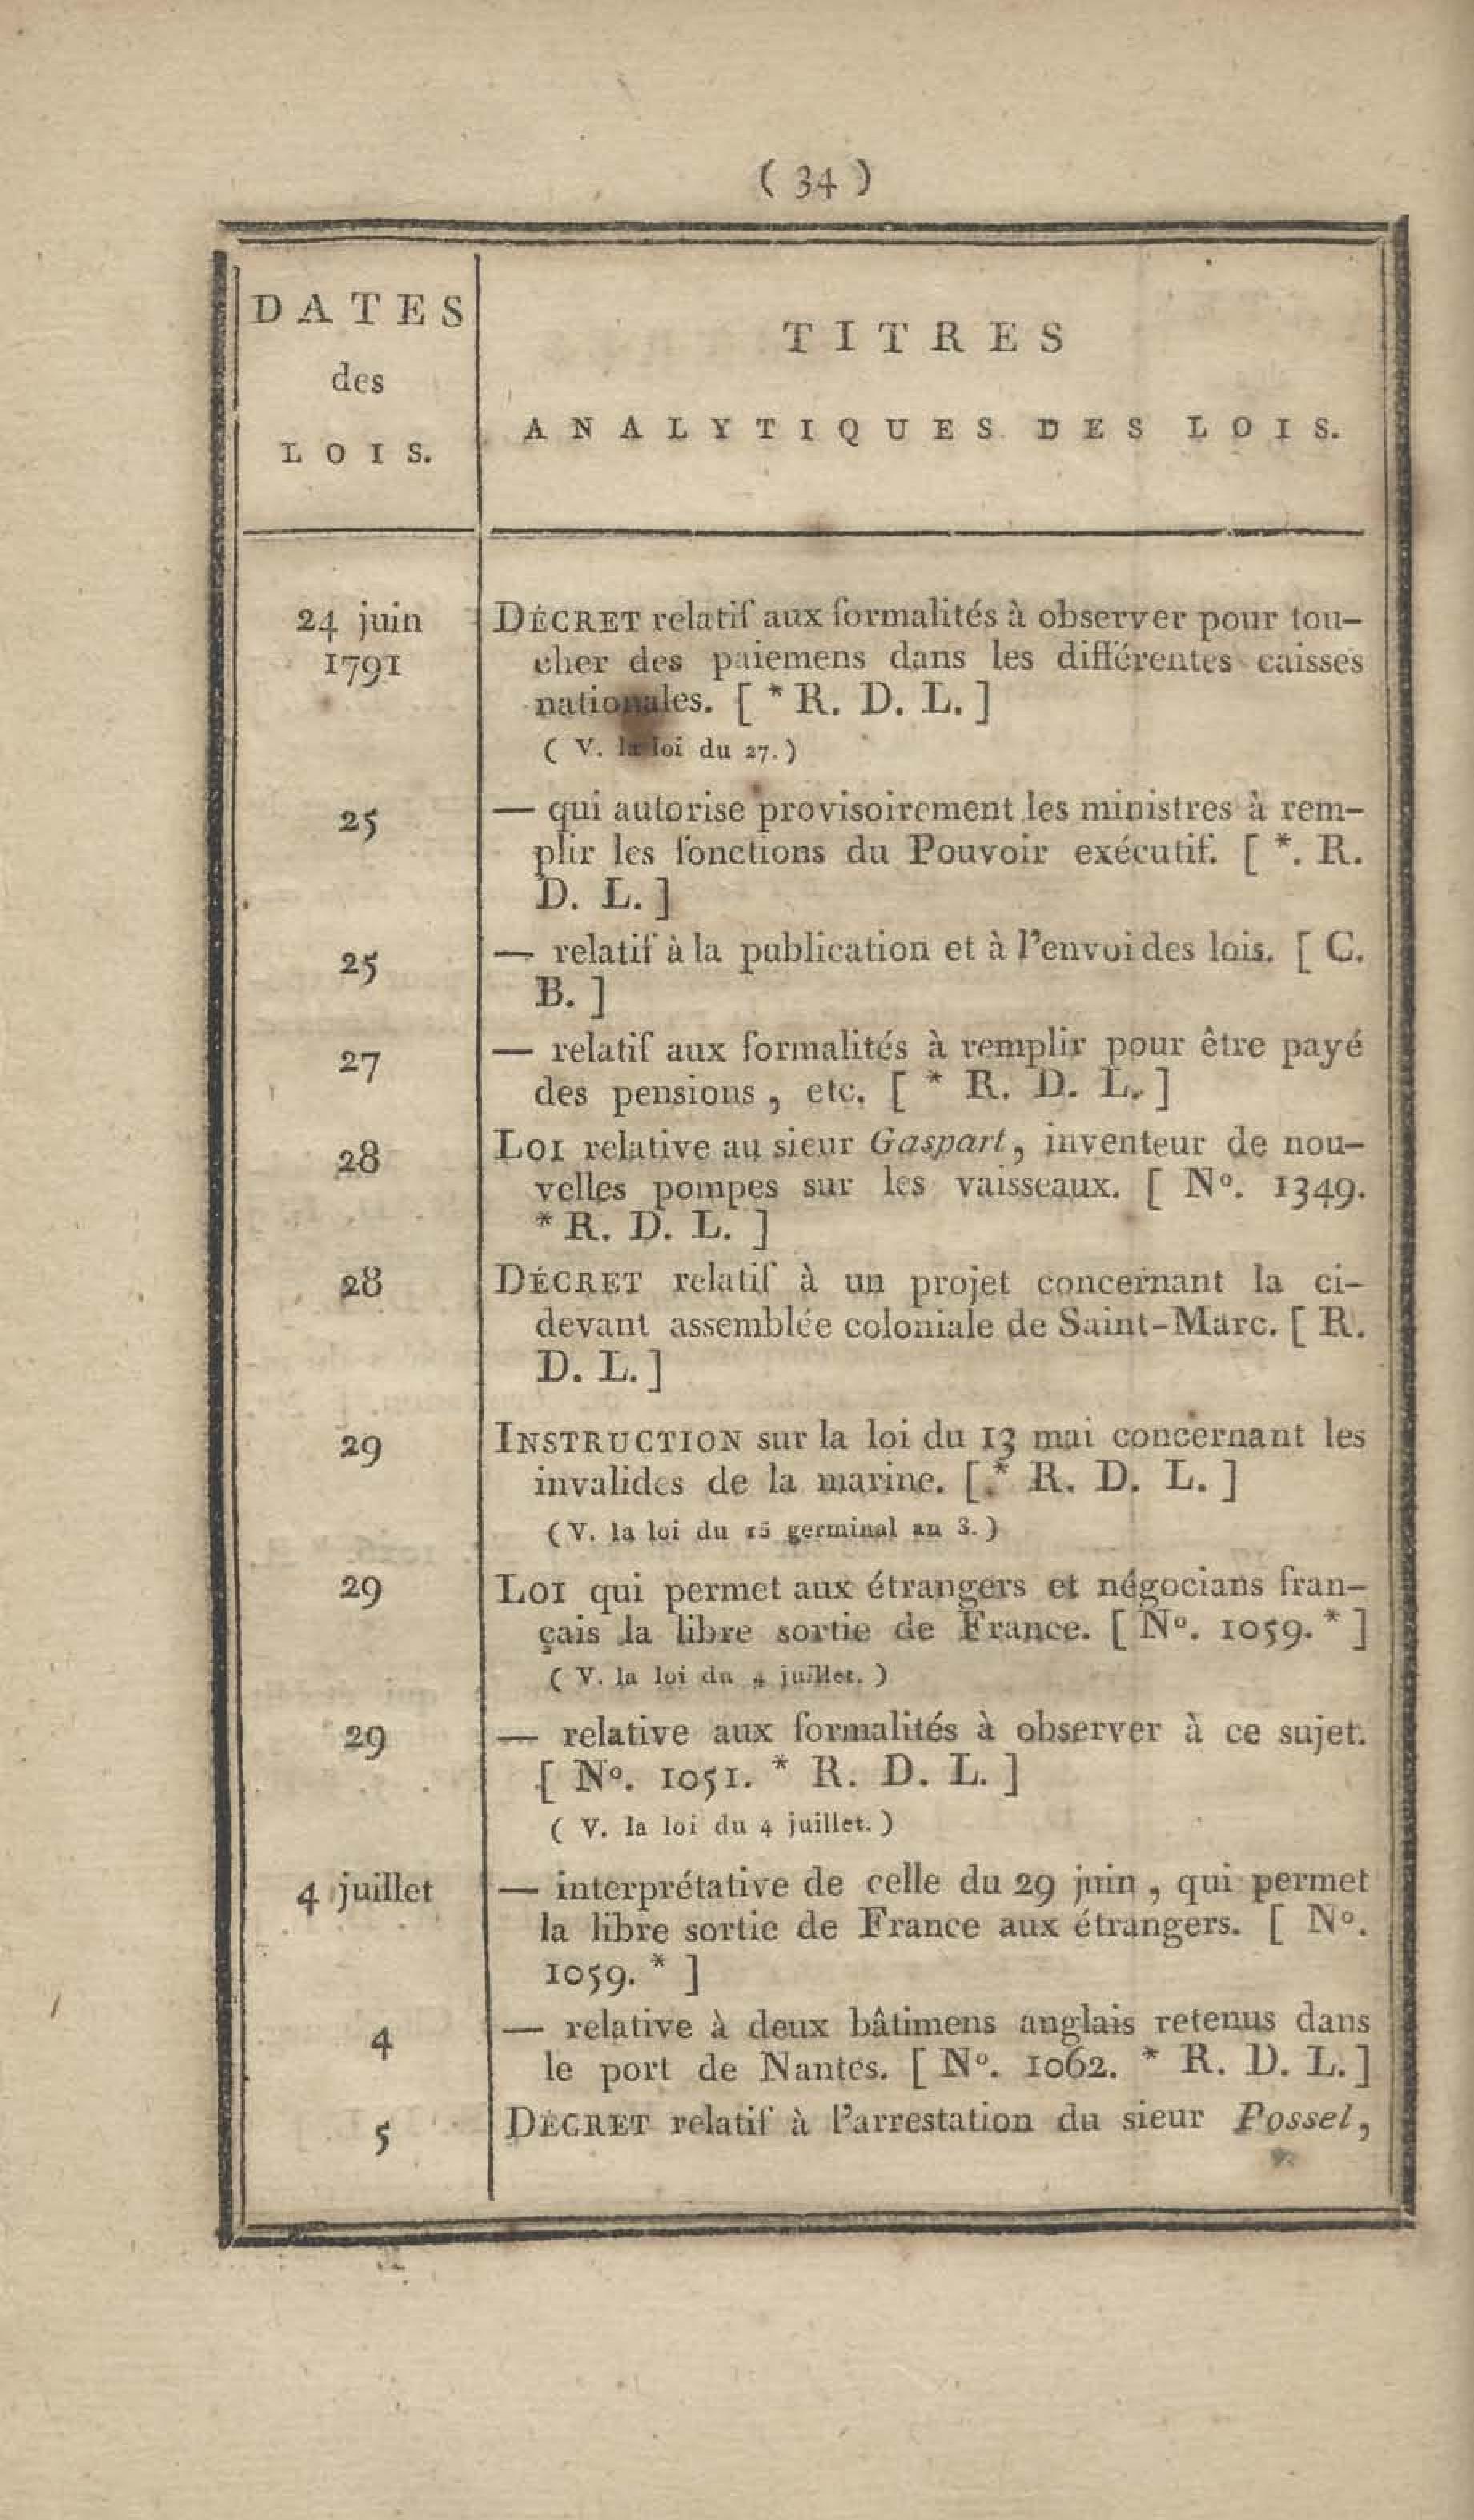 ( 34 )
DATES
des
LOIS.
TITRES
ANALYTIQUES DES LOIS.
24 juin DÉCRET relatif aux formalités à observer pour tou-
1791 cher des paiemens dans les différentes caisses
nationales. [ * R. D. L. ]
( V. la loi du 27. )
25 — qui autorise provisoirement les ministres à rem-
plir les fonctions du Pouvoir exécutif. [ *. R.
D. L. ]
25 — relatif à la publication et à l'envoi des lois. [ C.
B. ]
27 — relatif aux formalités à remplir pour être payé
des pensions , etc. [ * R. D. L. ]
28 LOI relative au sieur Gaspart, inventeur de nou-
velles pompes sur les vaisseaux. [ Nº. 1349.
* R. D. L. ]
28 DÉCRET relatif à un projet concernant la ci-
devant assemblée coloniale de Saint-Marc. [ R.
D. L. ]
29 INSTRUCTION sur la loi du 13 mai concernant les
invalides de la marine. [ * R. D. L. ]
( V. la loi du 15 germinal an 3. )
29 LOI qui permet aux étrangers et négocians fran-
çais la libre sortie de France. [ Nº. 1059. * ]
( V. la loi du 4 juillet. )
29 — relative aux formalités à observer à ce sujet.
[ Nº. 1051. * R. D. L. ]
( V. la loi du 4 juillet. )
4 juillet — interprétative de celle du 29 juin , qui permet
la libre sortie de France aux étrangers. [ Nº.
1059. * ]
4 — relative à deux bâtimens anglais retenus dans
le port de Nantes. [ Nº. 1062. * R. D. L. ]
5 DÉCRET relatif à l'arrestation du sieur Possel,